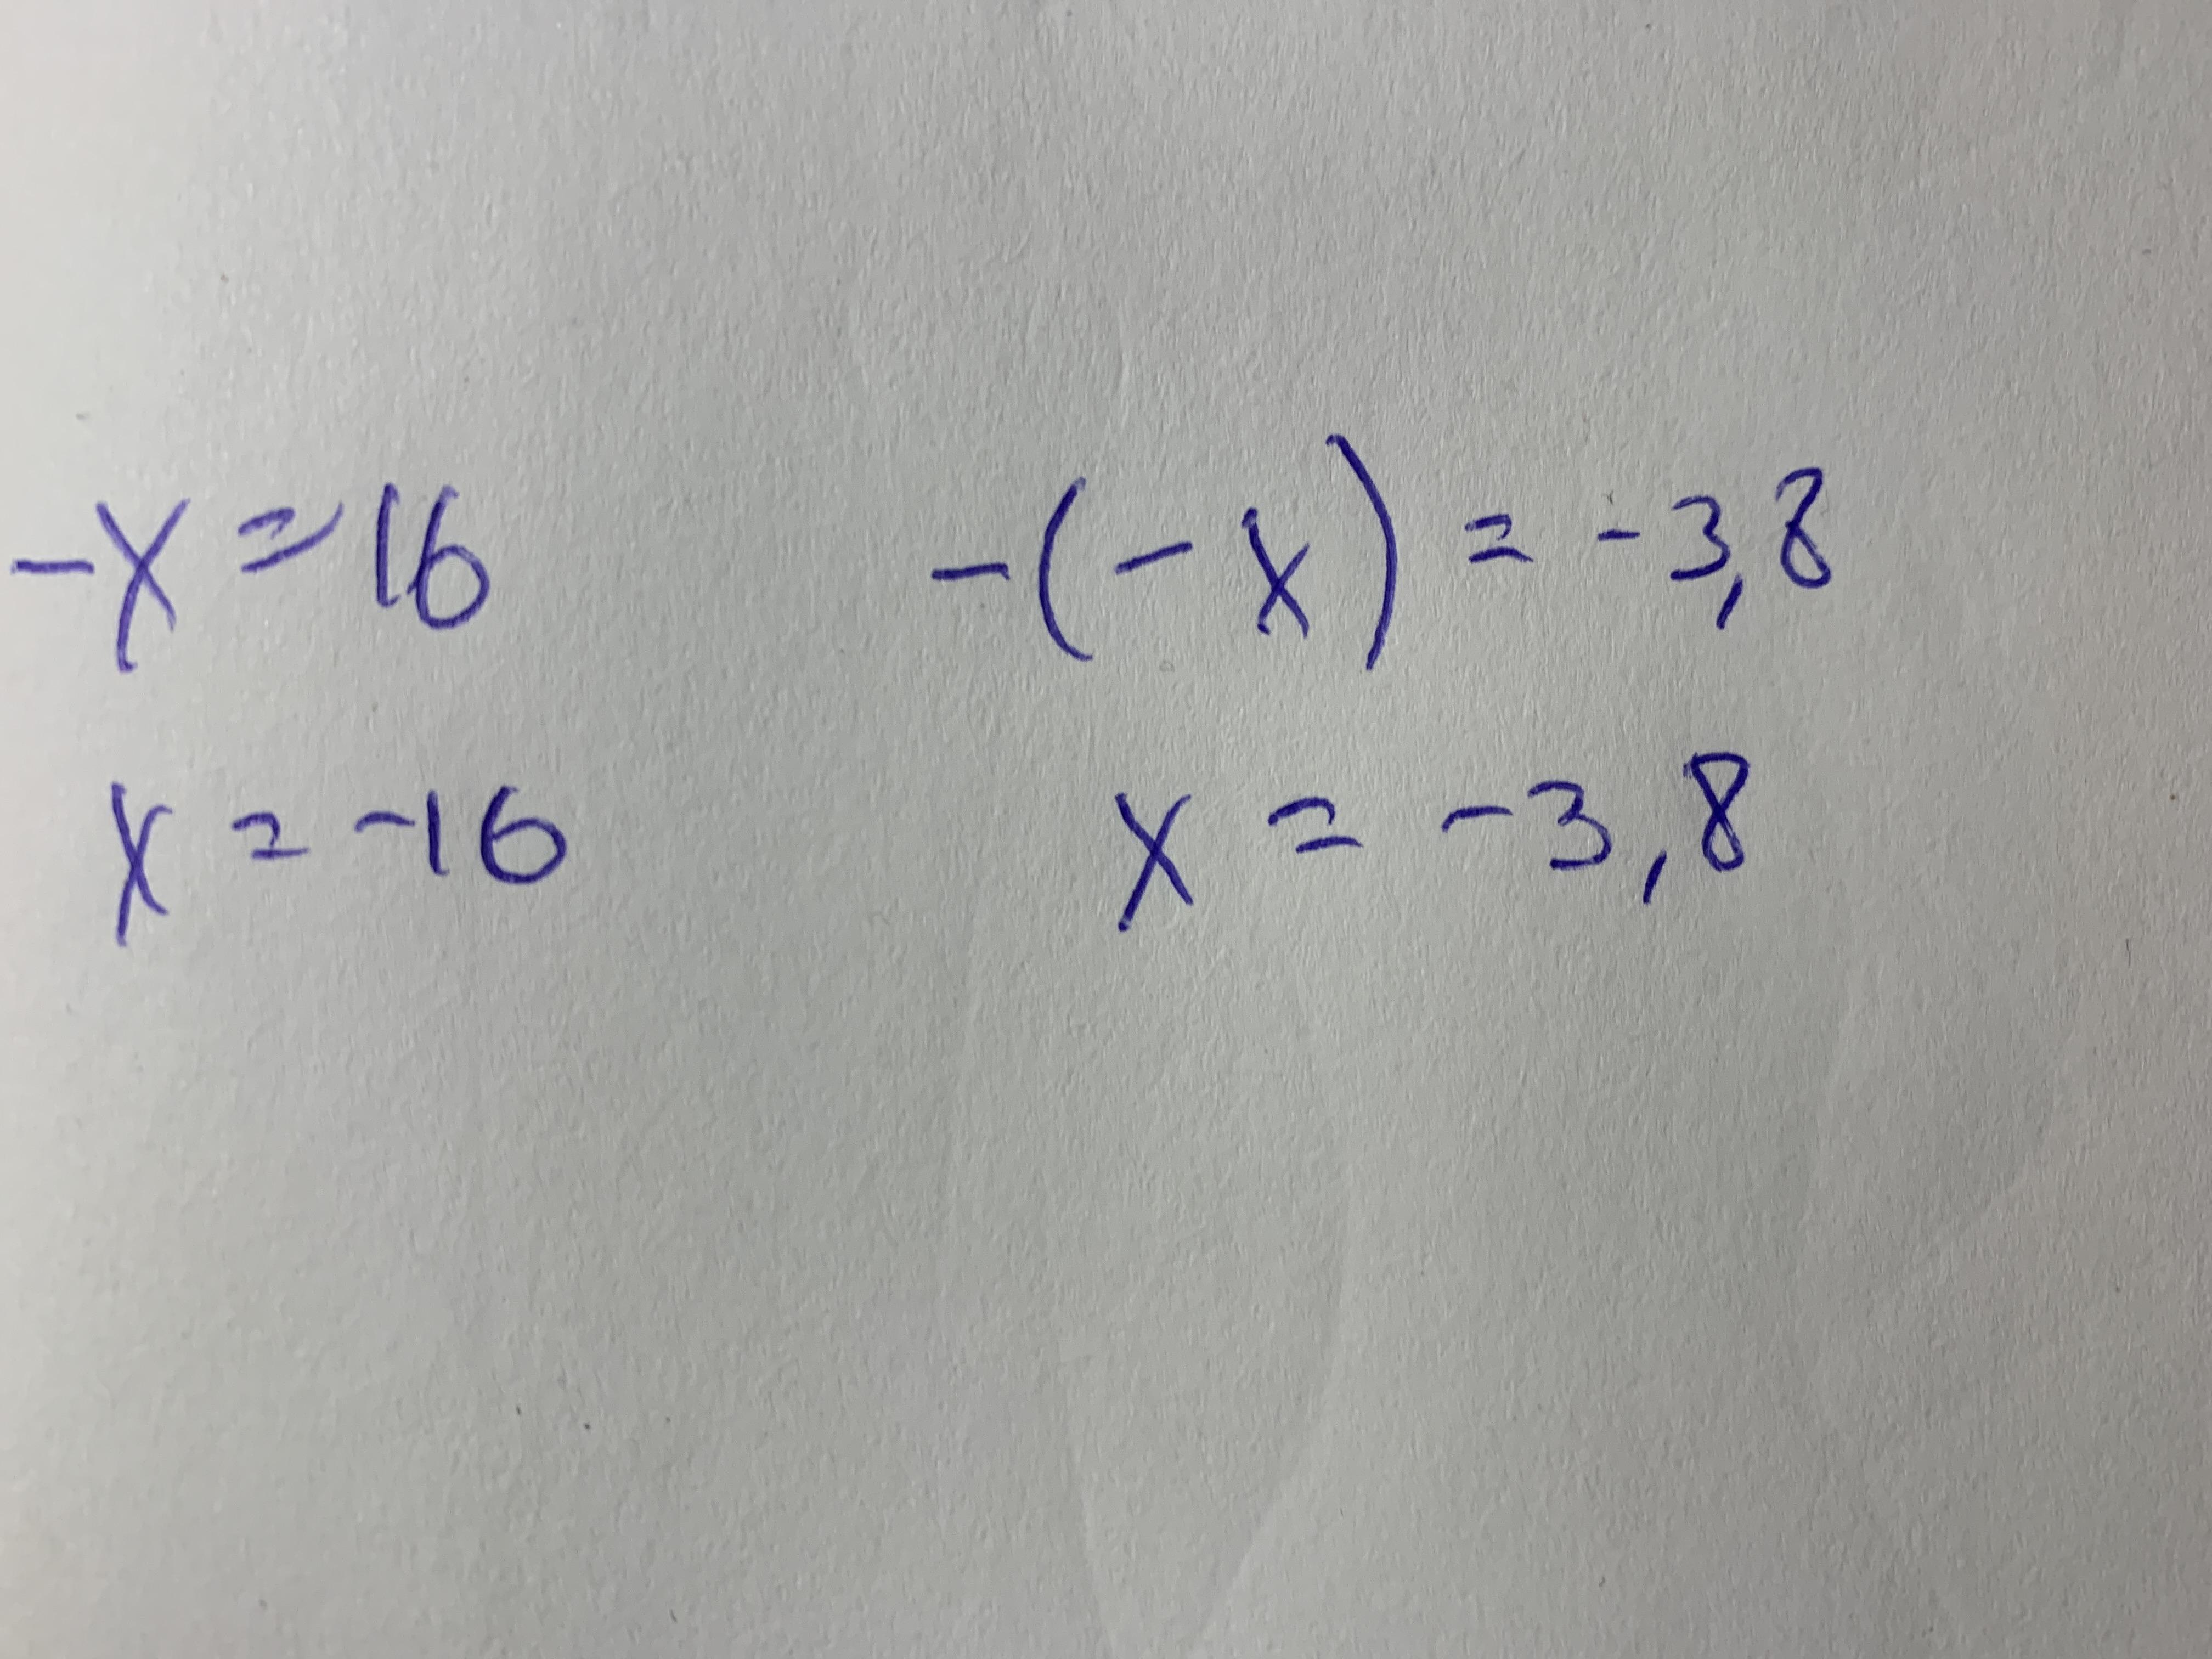 -x = 16
x = -16
-(-x) = -3,8
x = -3,8